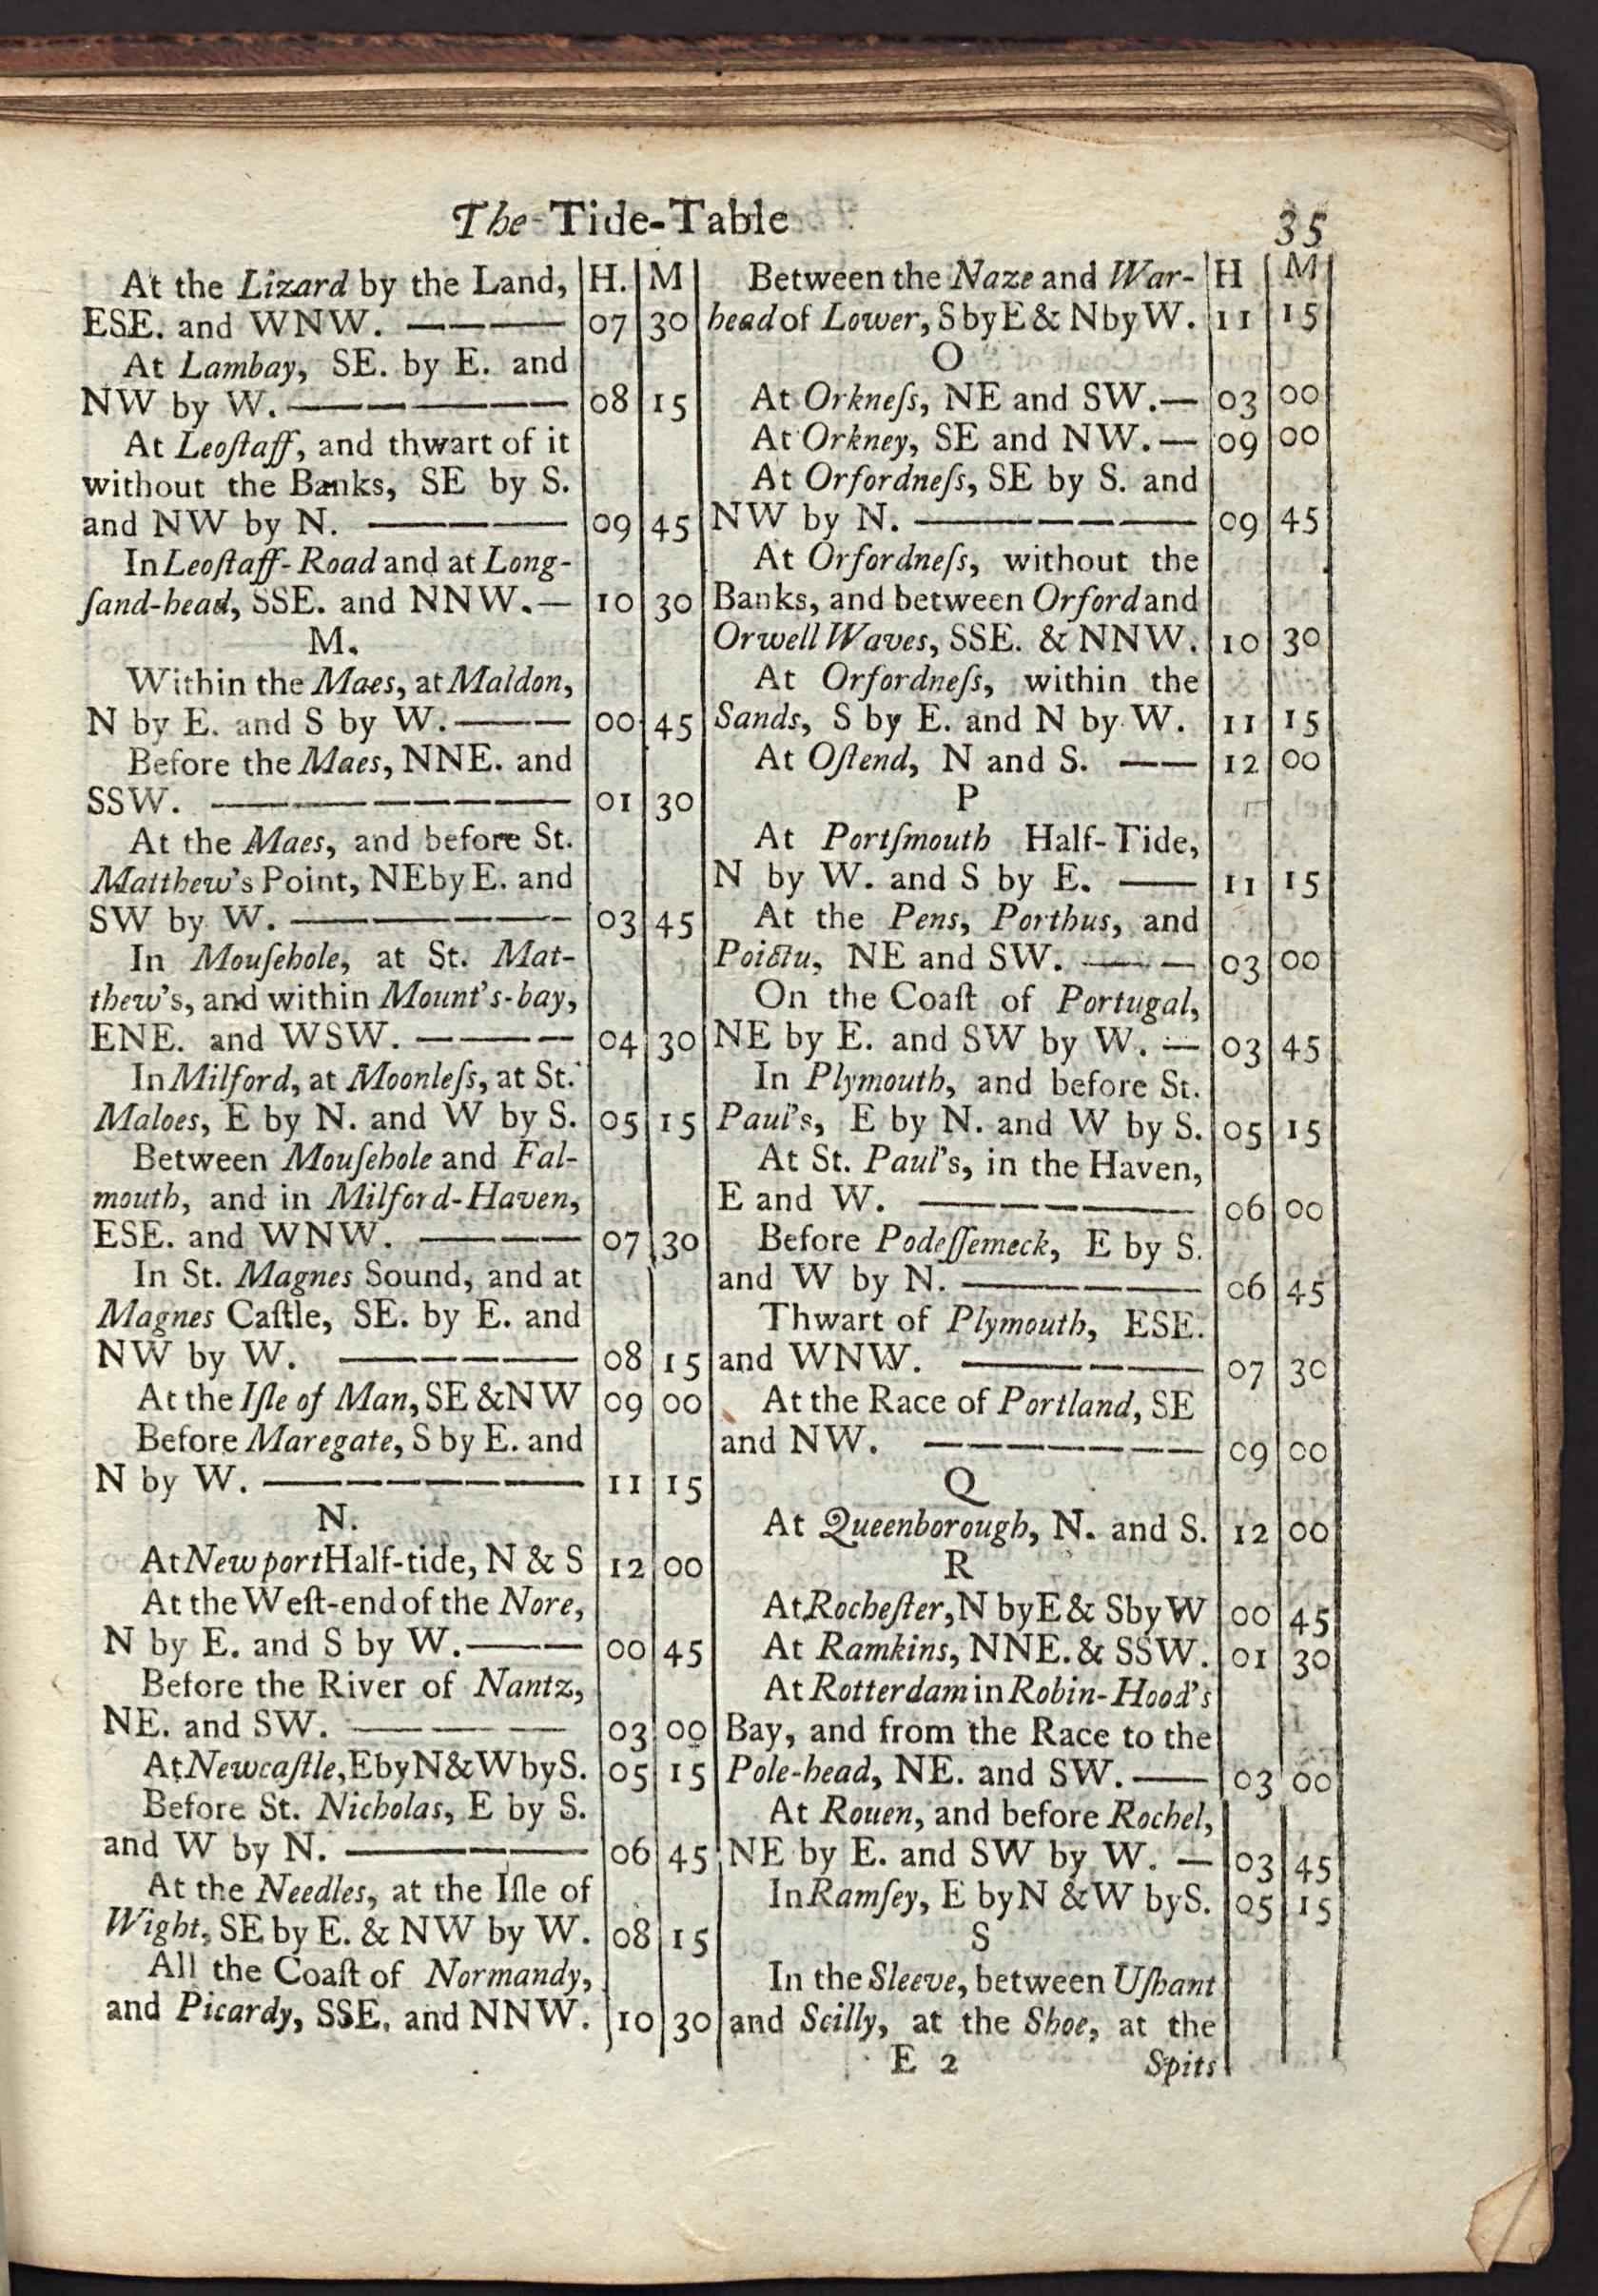 The Tide-Table 35
At the Lizard by the Land, H. M
ESE. and WNW. ———— 07 30
At Lambay, SE. by E. and
NW by W. —————— 08 15
At Leoſtaff, and thwart of it
without the Banks, SE by S.
and NW by N. ————— 09 45
In Leoſtaff-Road and at Long-
ſand-head, SSE. and NNW.— 10 30
M.
Within the Maes, at Maldon,
N by E. and S by W. ——— 00 45
Before the Maes, NNE. and
SSW. ————————— 01 30
At the Maes, and before St.
Matthew's Point, NE by E. and
SW by W. ——————— 03 45
In Mouſehole, at St. Mat-
thew's, and within Mount's-bay,
ENE. and WSW. ———— 04 30
In Milford, at Moonleſs, at St.
Maloes, E by N. and W by S. 05 15
Between Mouſehole and Fal-
mouth, and in Milford-Haven,
ESE. and WNW. ———— 07 30
In St. Magnes Sound, and at
Magnes Caſtle, SE. by E. and
NW by W. —————— 08 15
At the Iſle of Man, SE & NW 09 00
Before Maregate, S by E. and
N by W. ———————— 11 15
N.
At Newport Half-tide, N & S 12 00
At the Weſt-end of the Nore,
N by E. and S by W. ——— 00 45
Before the River of Nantz,
NE. and SW. ———— 03 00
At Newcaſtle, E by N & W by S. 05 15
Before St. Nicholas, E by S.
and W by N. —————— 06 45
At the Needles, at the Iſle of
Wight, SE by E. & NW by W. 08 15
All the Coaſt of Normandy,
and Picardy, SSE. and NNW. 10 30
Between the Naze and War- H M
head of Lower, S by E & N by W. 11 15
O
At Orkneſs, NE and SW.— 03 00
At Orkney, SE and NW.— 09 00
At Orfordneſs, SE by S. and
NW by N. ——————— 09 45
At Orfordneſs, without the
Banks, and between Orford and
Orwell Waves, SSE. & NNW. 10 30
At Orfordneſs, within the
Sands, S by E. and N by W. 11 15
At Oſtend, N and S. —— 12 00
P
At Portſmouth Half-Tide,
N by W. and S by E. —— 11 15
At the Pens, Porthus, and
Poictu, NE and SW. ——— 03 00
On the Coaſt of Portugal,
NE by E. and SW by W. — 03 45
In Plymouth, and before St.
Paul's, E by N. and W by S. 05 15
At St. Paul's, in the Haven,
E and W. ——————— 06 00
Before Podeſſemeck, E by S.
and W by N. —————— 06 45
Thwart of Plymouth, ESE.
and WNW. —————— 07 30
At the Race of Portland, SE
and NW. ——————— 09 00
Q
At Queenborough, N. and S. 12 00
R
At Rocheſter, N by E & S by W 00 45
At Ramkins, NNE. & SSW. 01 30
At Rotterdam in Robin-Hood's
Bay, and from the Race to the
Pole-head, NE. and SW. —— 03 00
At Rouen, and before Rochel,
NE by E. and SW by W. — 03 45
In Ramſey, E by N & W by S. 05 15
S
In the Sleeve, between Uſhant
and Scilly, at the Shoe, at the
E 2 Spits